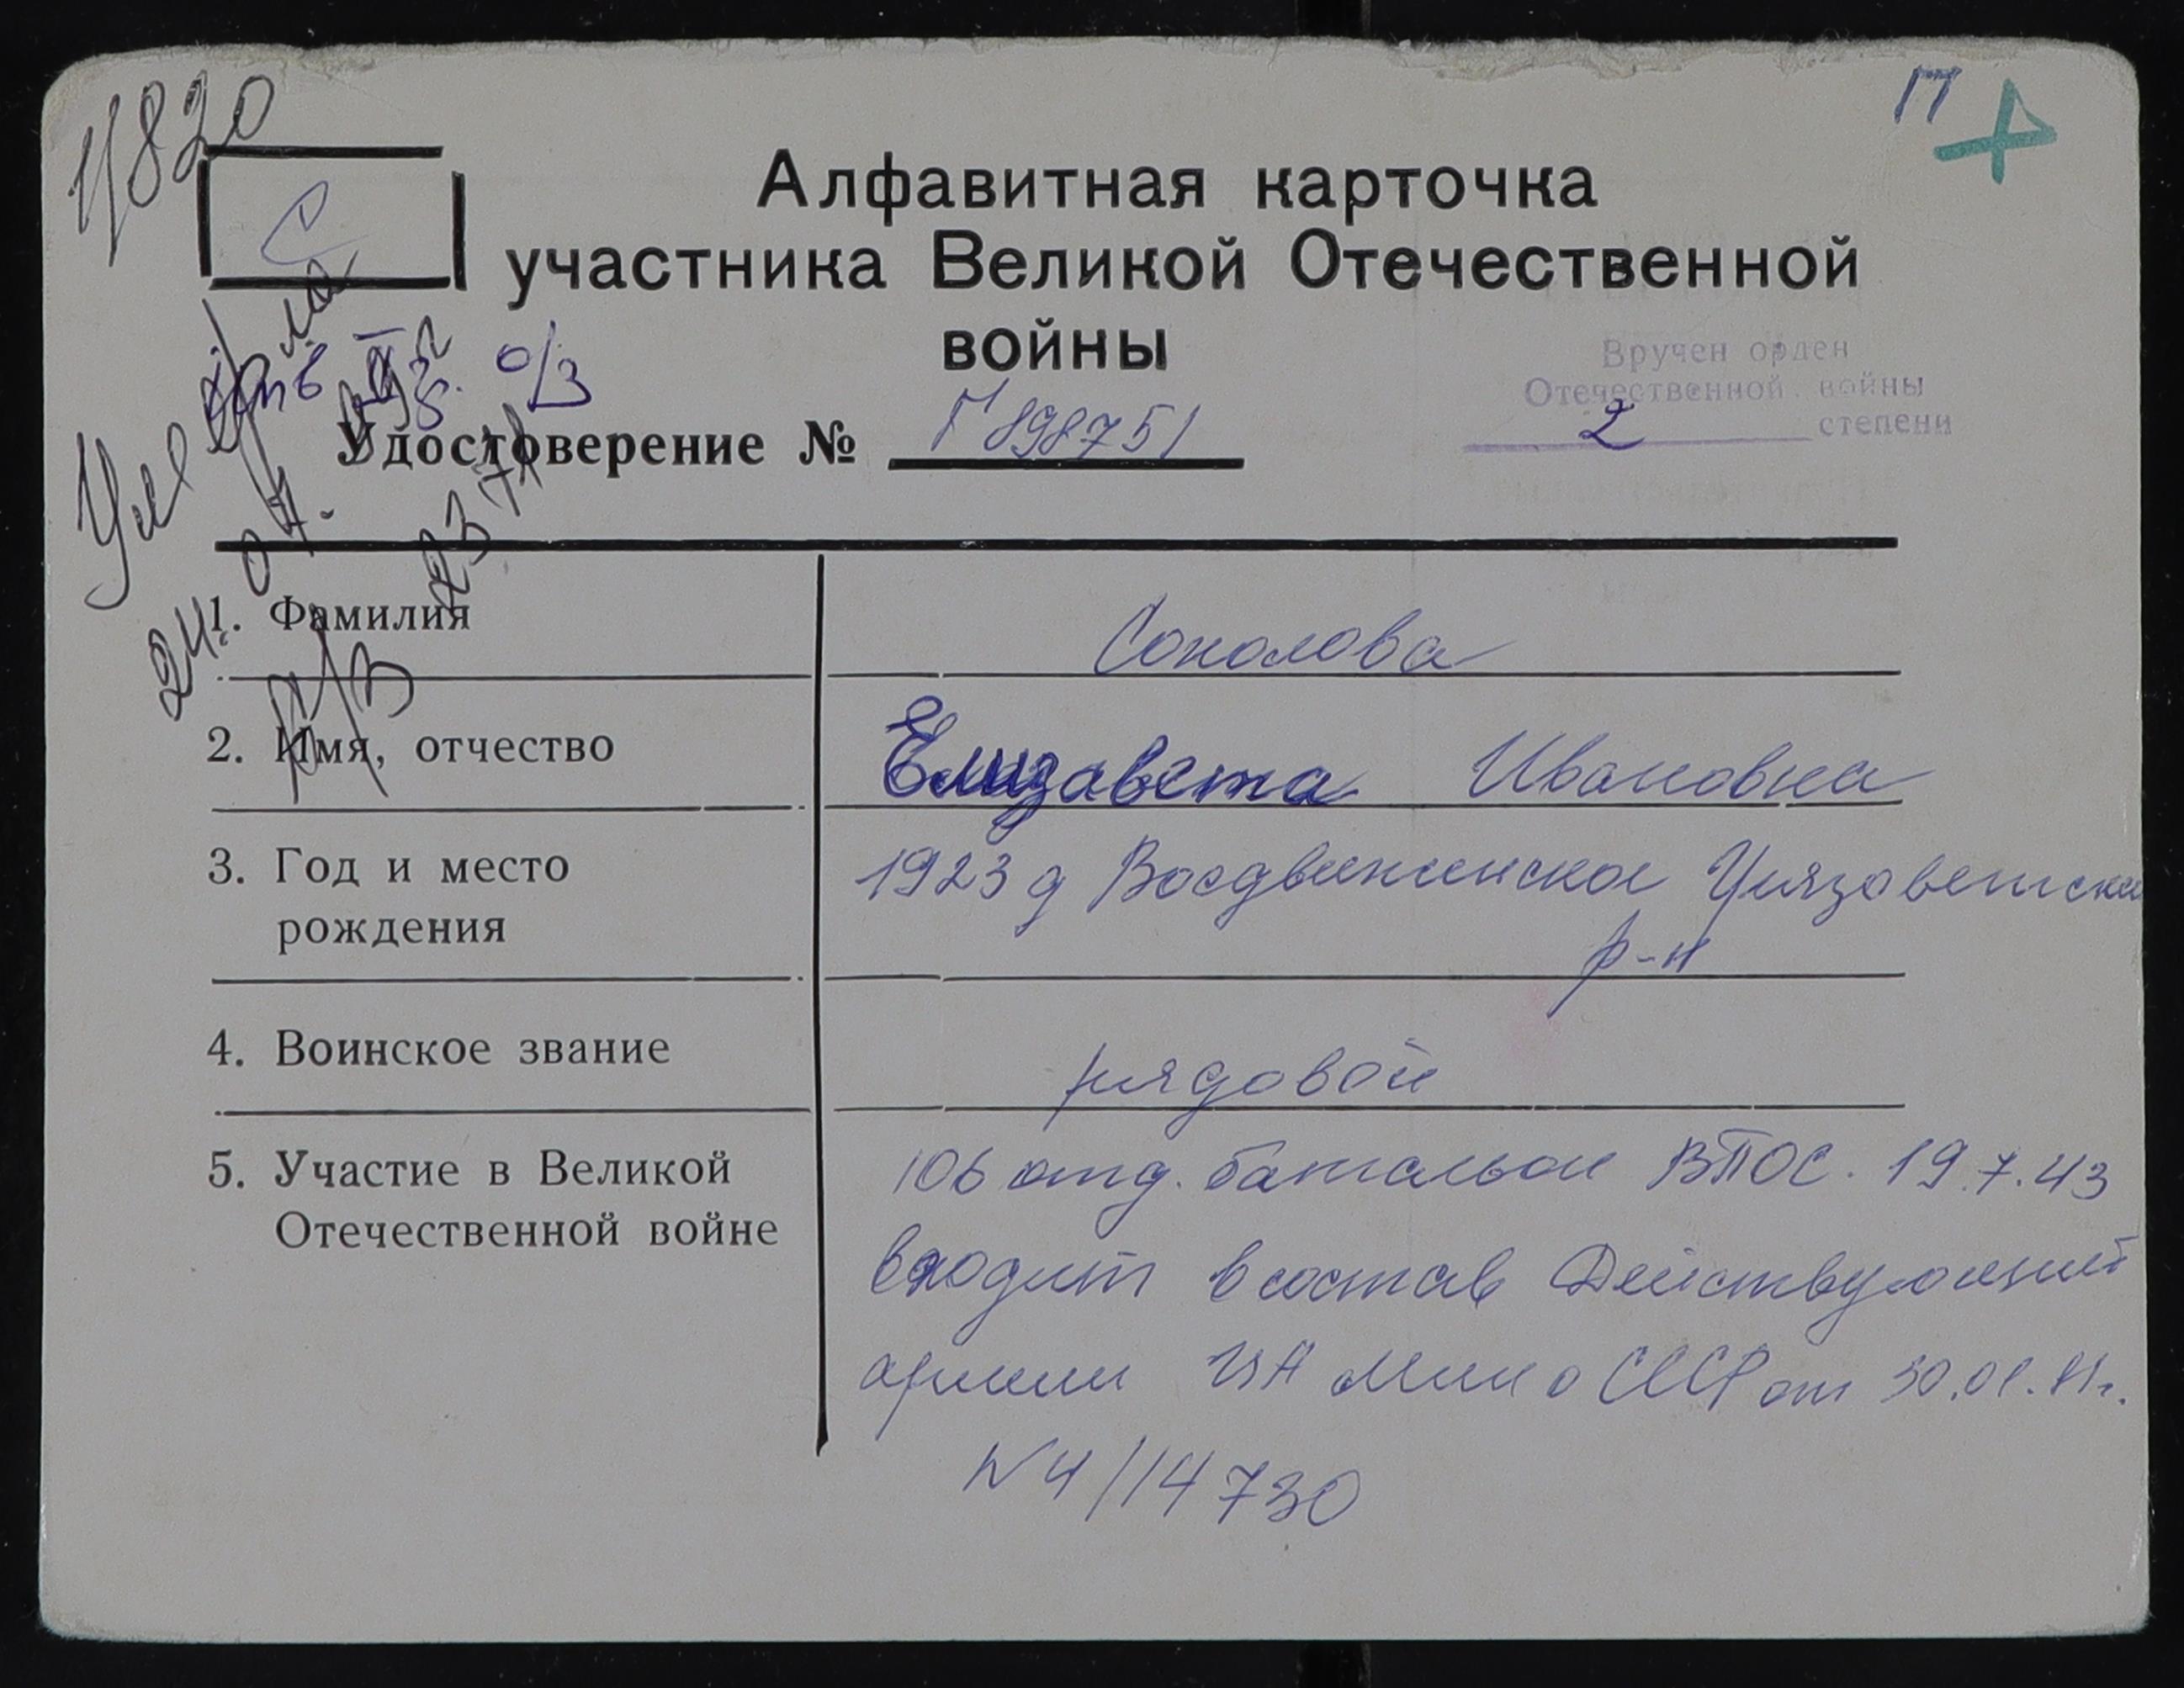 1/820
П
С
Алфавитная карточка
участника Великой Отечественной
войны
Вручен орден
Отечественной войны
2 степени
о/з
Удостоверение № Г 898751
24. 04.
1. Фамилия Соколова
2. Имя, отчество Елизавета Ивановна
3. Год и место рождения 1923 д Воздвиженское
р-н
4. Воинское звание рядовой
5. Участие в Великой Отечественной войне 106 отд. батальон ВПОС. 19.7.43
входит в состав Действующей
армии
СССР от
N 4/14730